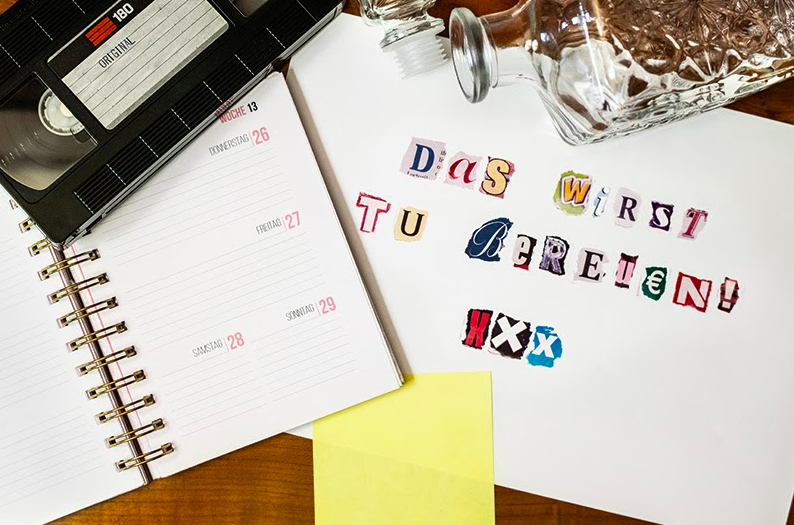 180
ORIGINAL
WOCHE 13
DONNERSTAG 26
FREITAG 27
SAMSTAG 28
SONNTAG 29
DAS WiRST
TU BEREI€N!
XXX